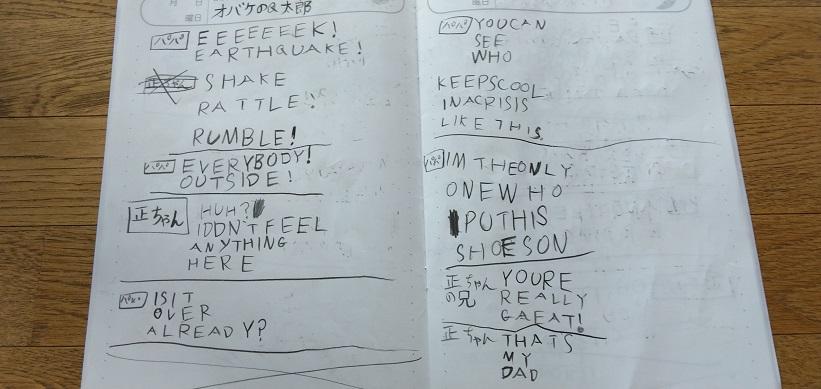 月 日
曜日
オバケのQ太郎
パパ EEEEEEEK!
EARTHQUAKE!
SHAKE
RATTLE!
RUMBLE!
パパ EVERYBODY!
OUTSIDE!
正ちゃん HUH?
IDDN'T FEEL
ANYTHING
HERE
パパ ISIT
OVER
ALREADY?
曜日
パパ YOUCAN
SEE
WHO
KEEPSCOOL
INACRISIS
LIKE THIS
パパ IM THEONLY
ONEWHO
PUTHIS
SHOESON
正ちゃんの兄 YOURE
REALLY
GAEAT!
正ちゃん THATS
MY
DAD